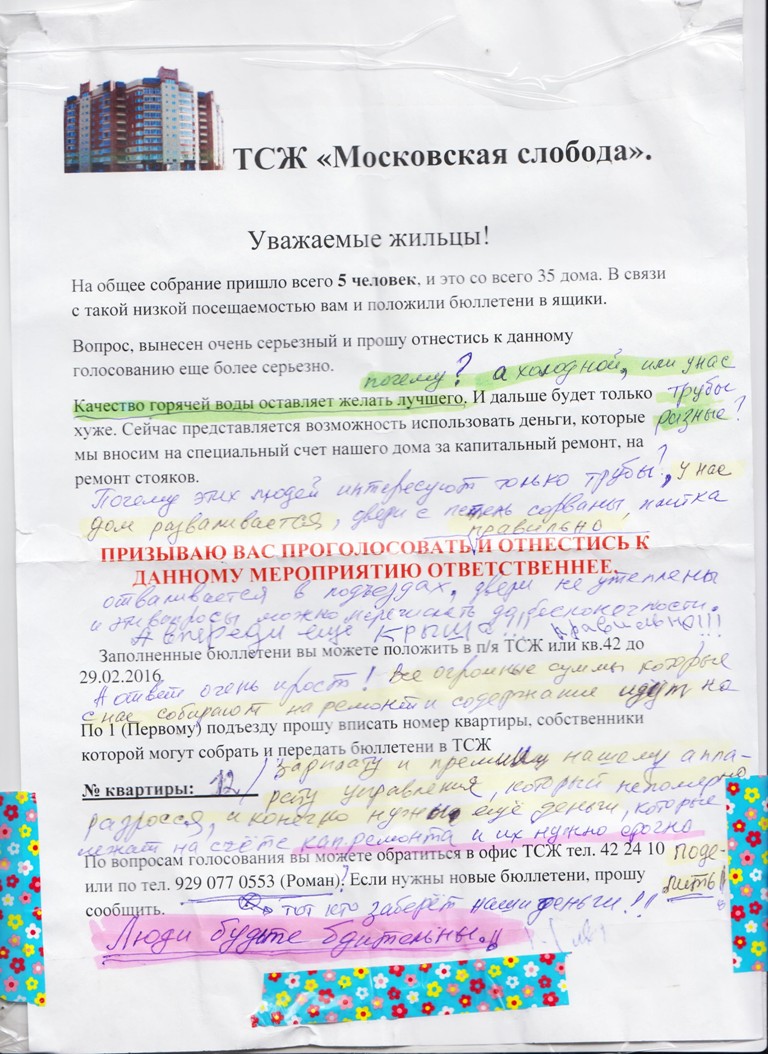 ТСЖ «Московская слобода».
Уважаемые жильцы!
На общее собрание пришло всего 5 человек, и это со всего 35 дома. В связи
с такой низкой посещаемостью вам и положили бюллетени в ящики.
Вопрос, вынесен очень серьезный и прошу отнестись к данному
голосованию еще более серьезно.
почему? а холодной, или у нас
Качество горячей воды оставляет желать лучшего. И дальше будет только
трубы
хуже. Сейчас представляется возможность использовать деньги, которые
разные?
мы вносим на специальный счет нашего дома за капитальный ремонт, на
ремонт стояков.
Почему этих людей интересуют только трубы?, у нас
дом разваливается, двери с петель сорваны, плитка
правильно
ПРИЗЫВАЮ ВАС ПРОГОЛОСОВАТЬ И ОТНЕСТИСЬ К
ДАННОМУ МЕРОПРИЯТИЮ ОТВЕТСТВЕННЕЕ.
отваливается в подъездах, двери не утеплены
и эти вопросы можно перечислять до бесконечности.
А впереди еще крыша!!! правильно!!!
Заполненные бюллетени вы можете положить в п/я ТСЖ или кв.42 до
29.02.2016
А ответ очень прост! Все огромные суммы которые
с нас собирают на ремонт и содержание идут на
По 1 (Первому) подъезду прошу вписать номер квартиры, собственники
которой могут собрать и передать бюллетени в ТСЖ
зарплату и премии нашему аппа-
№ квартиры: 12/
рату управления, который непомерно
разросся, и конечно нужны ещё деньги, которые
лежат на счёте капремонта и их нужно срочно
По вопросам голосования вы можете обратиться в офис ТСЖ тел. 42 24 10
поде-
или по тел. 929 077 0553 (Роман). Если нужны новые бюллетени, прошу
лить!!
сообщить.
тот кто заберёт наши деньги!!!
Люди будьте бдительны!!